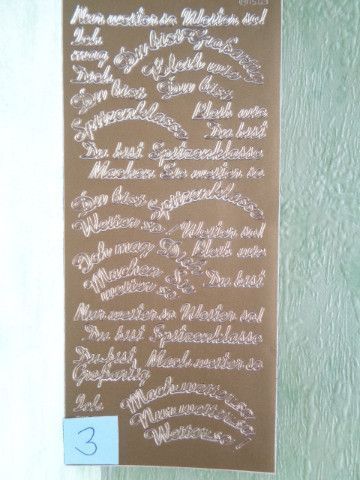 Nur weiter so Weiter so!
Ich Du bist Großartig
mag Bleib wie
Dich Du bist
Du bist
Spitzenklasse Bleib wie
Du bist
Du bist Spitzenklasse
Machen Sie weiter so
Du bist Spitzenklasse
Weiter so! Weiter so!
Ich mag Dich Bleib wie
Machen Sie Du bist
weiter so
Nur weiter so Weiter so!
Du bist Spitzenklasse
Du bist Mach weiter so
Großartig
Ich Mach weiter so
Nur weiter so
Weiter so!
3